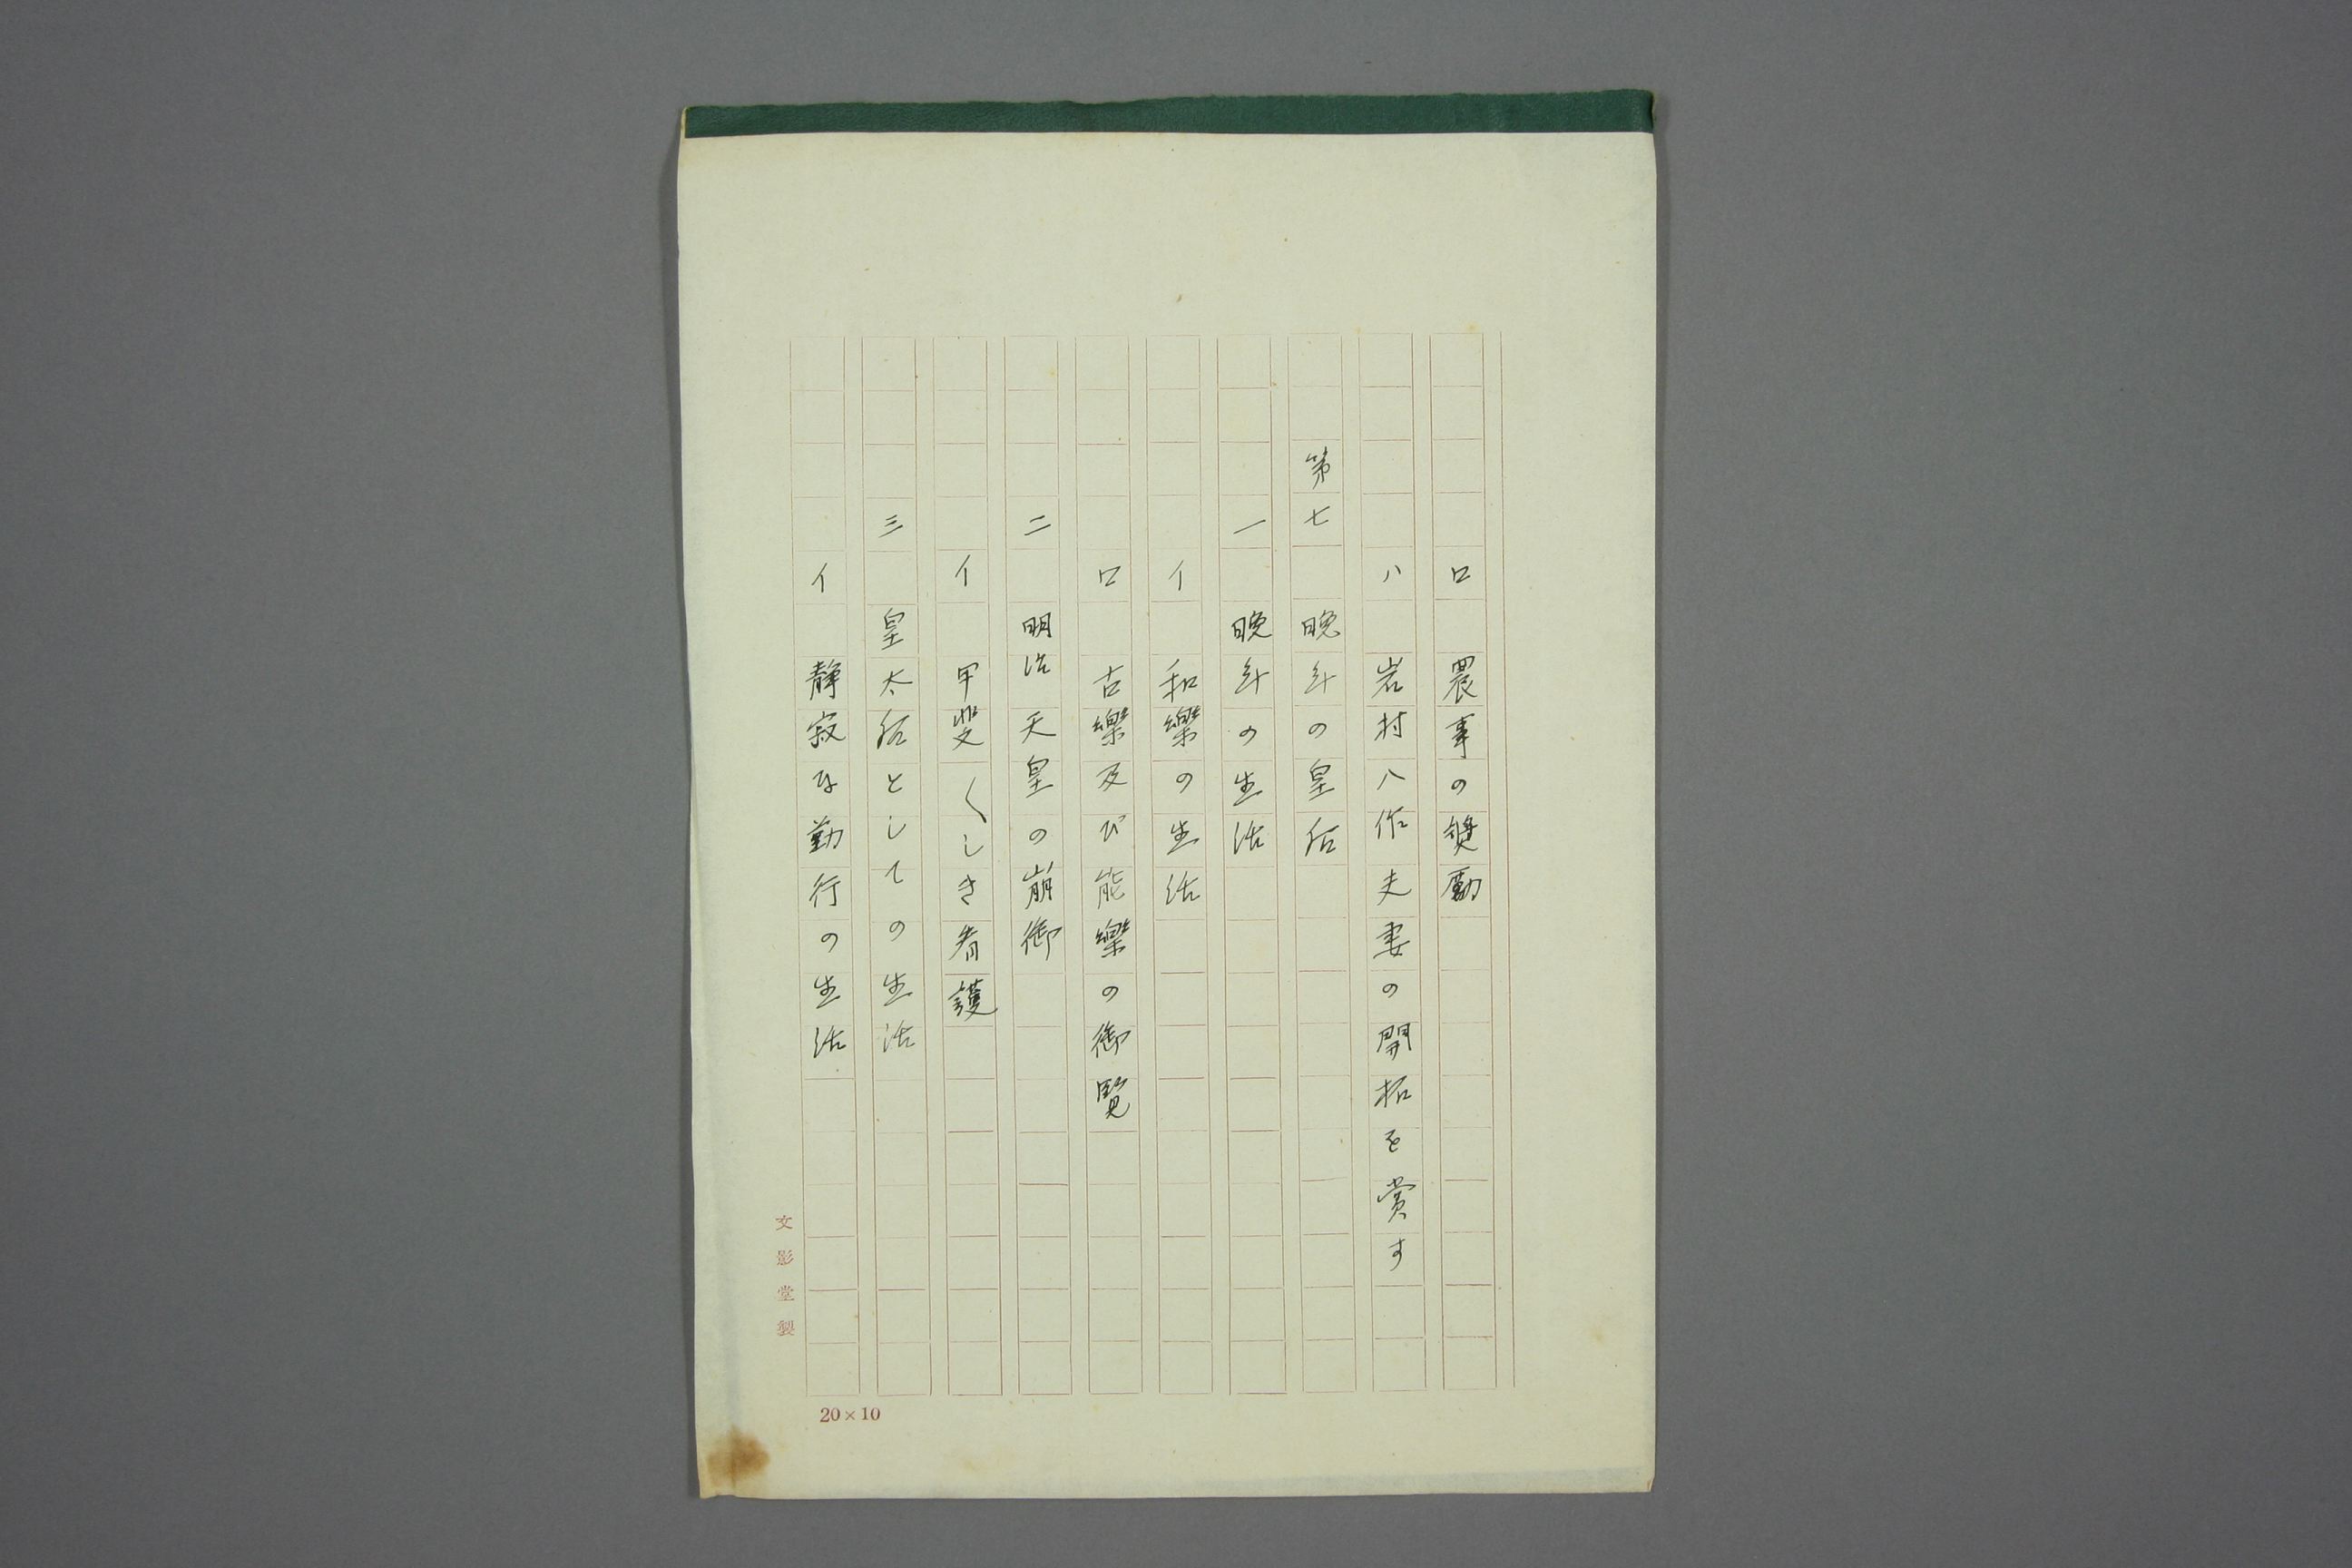 ロ　農事の奬勵
ハ　岩村八作夫妻の開拓を賞す
第七　晩年の皇后
一　晩年の生活
イ　和樂の生活
ロ　古樂及び能樂の御覧
二　明治天皇の崩御
イ　甲斐〱しき看護
三　皇太后としての生活
イ　静寂な勤行の生活
文影堂製
20×10